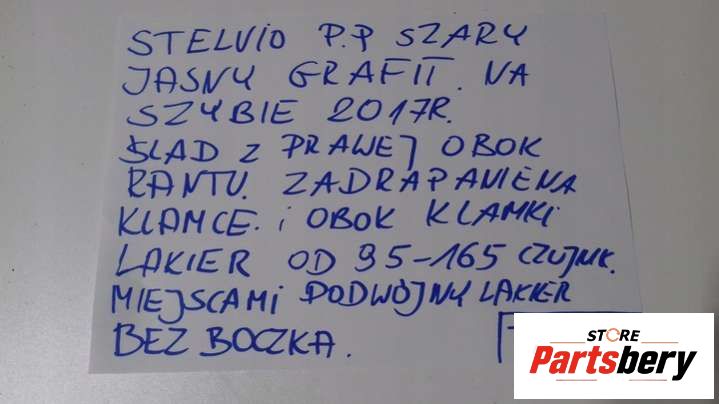 STELVIO P.P SZARY
JASNY GRAFIT. NA
SZYBIE 2017R.
ŚLAD Z PRAWEJ OBOK
RANTU. ZADRAPANIENA
KLAMCE. i OBOK KLAMKI
LAKIER OD 95-165 CZUJNK.
MIEJSCAMI PODWÓJNY LAKIER
BEZ BOCZKA.
STORE
Partsbery